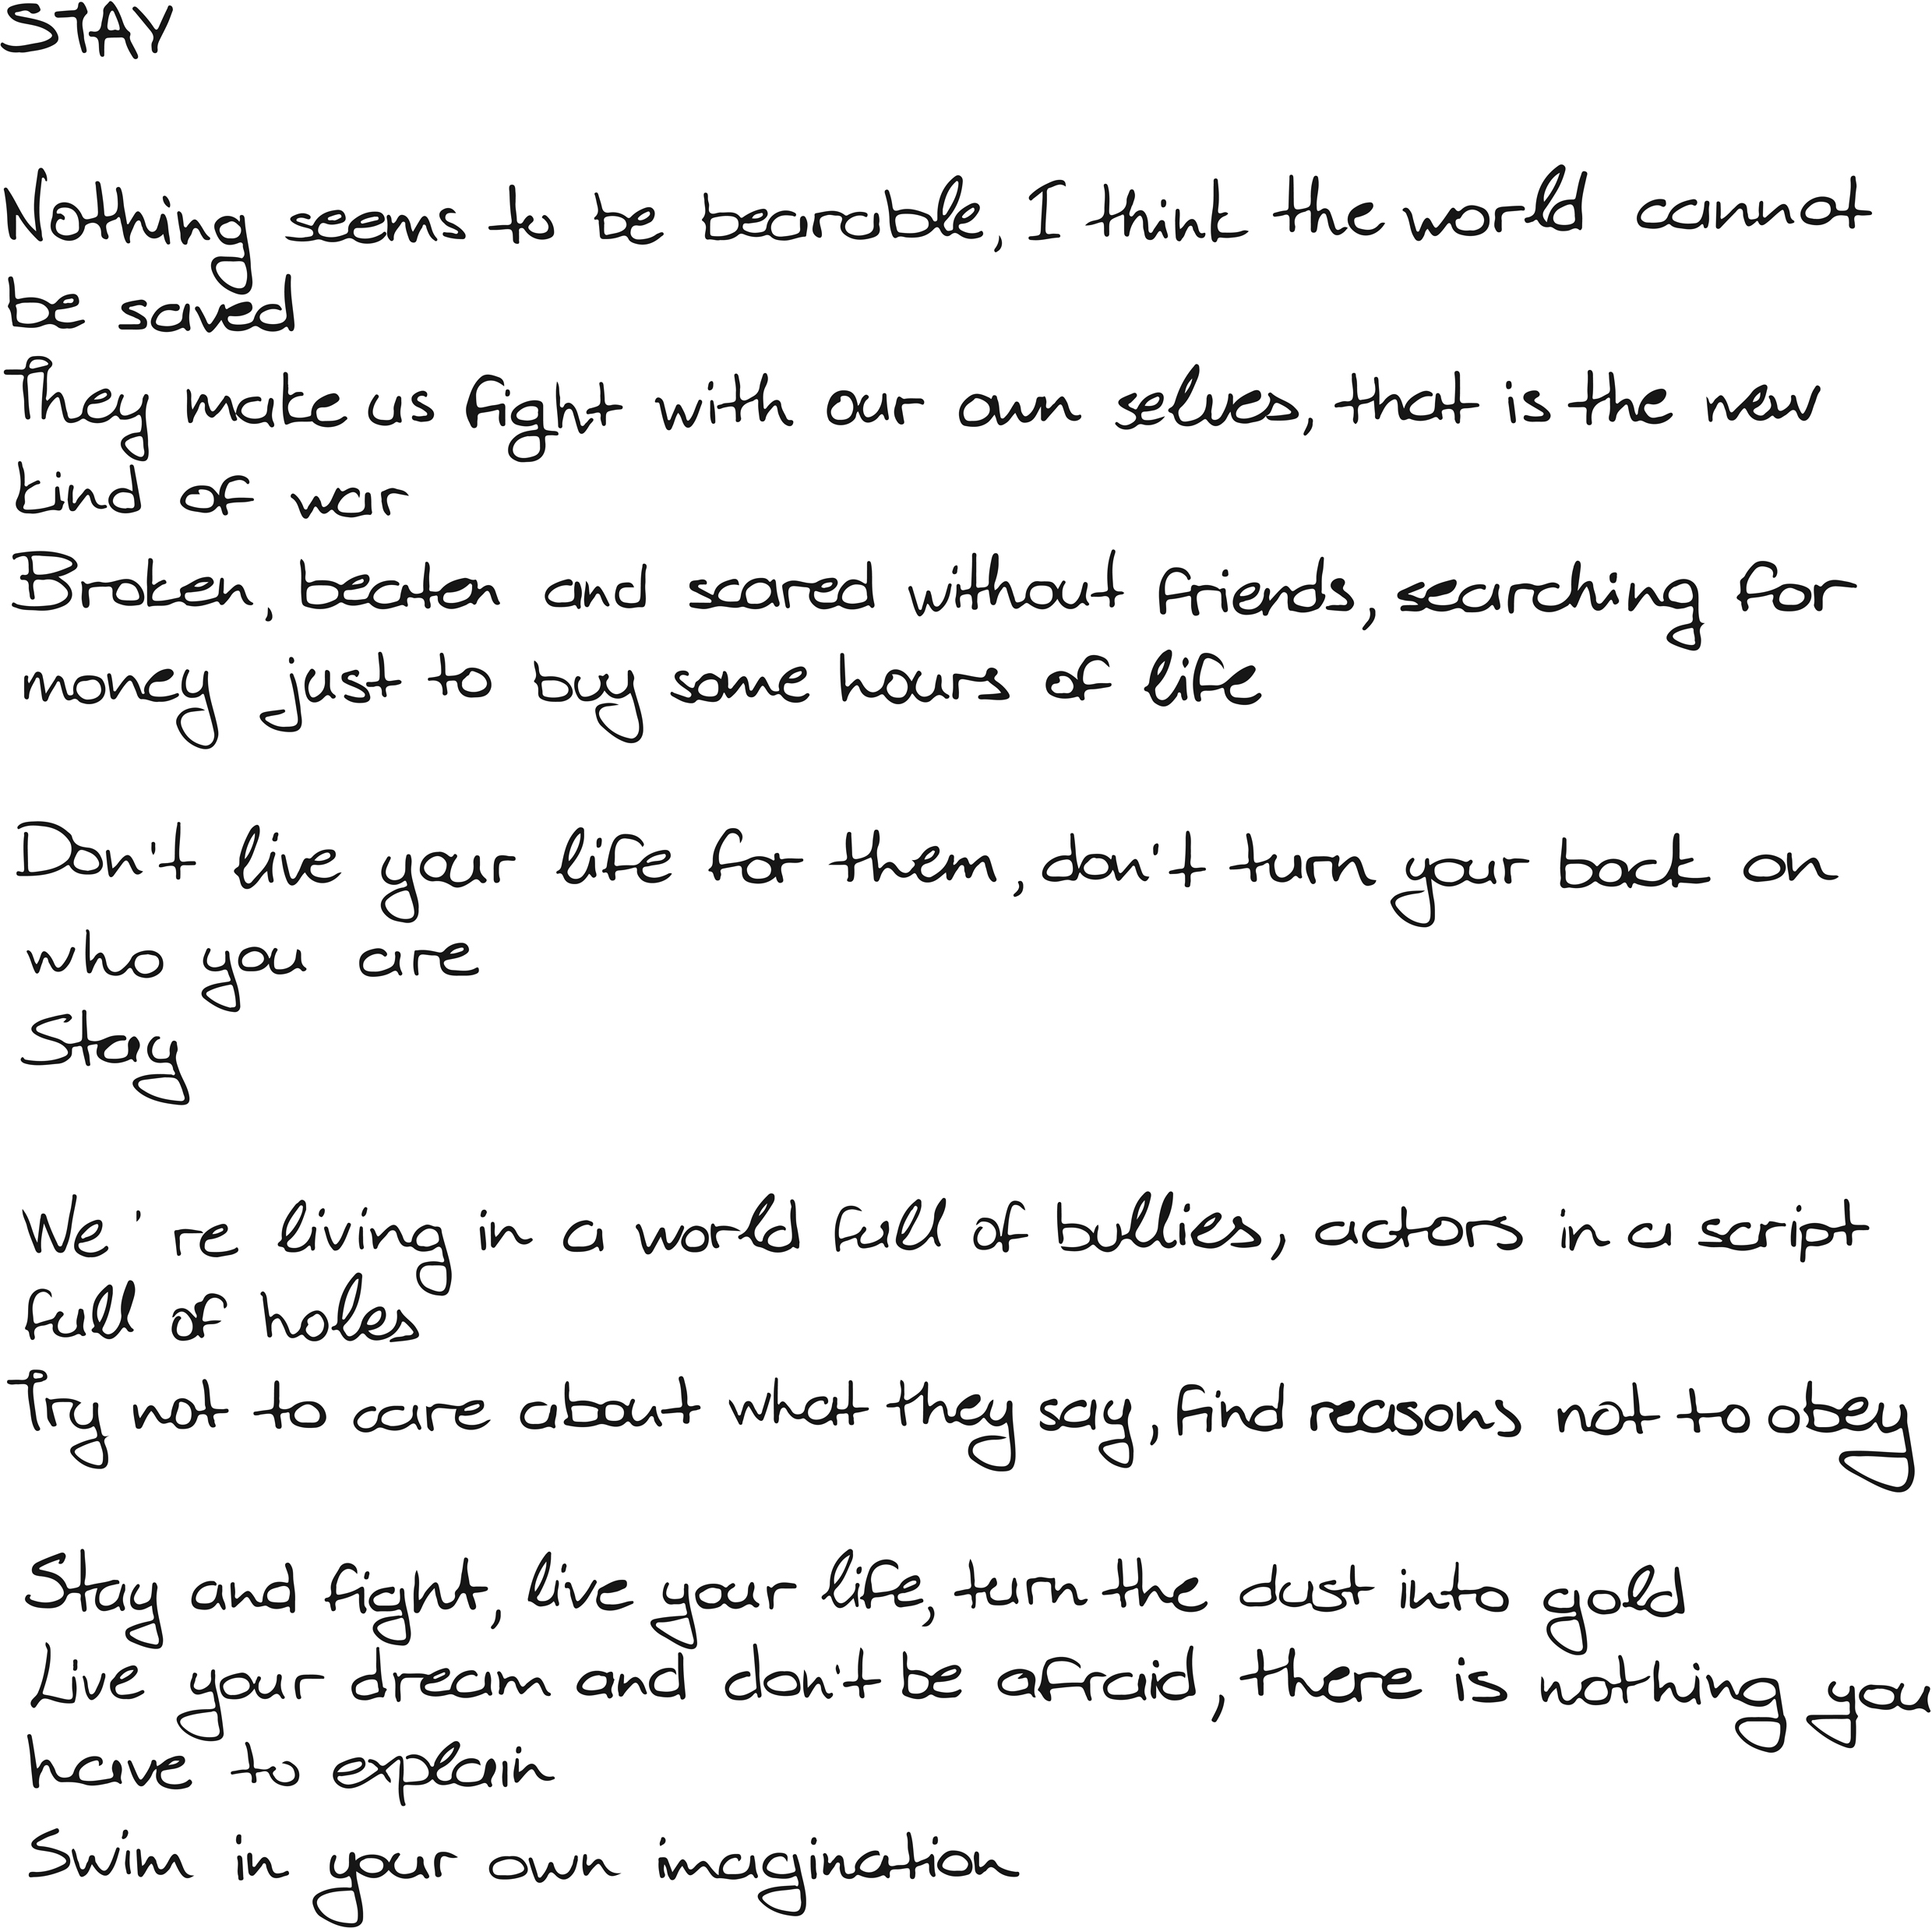 STAY
Nothing seems to be bearable, I think the world cannot
be saved
They make us fight with our own selves, that is the new
kind of war
Broken, beaten and scared without friends, searching for
money just to buy some hours of life
Don't live your life for them, don't turn your back on
who you are
Stay
We're living in a world full of bullies, actors in a script
full of holes
Try not to care about what they say, find reasons not to obey
Stay and fight, live your life, turn the dust into gold
Live your dream and don't be afraid, there is nothing you
have to explain
Swim in your own imagination